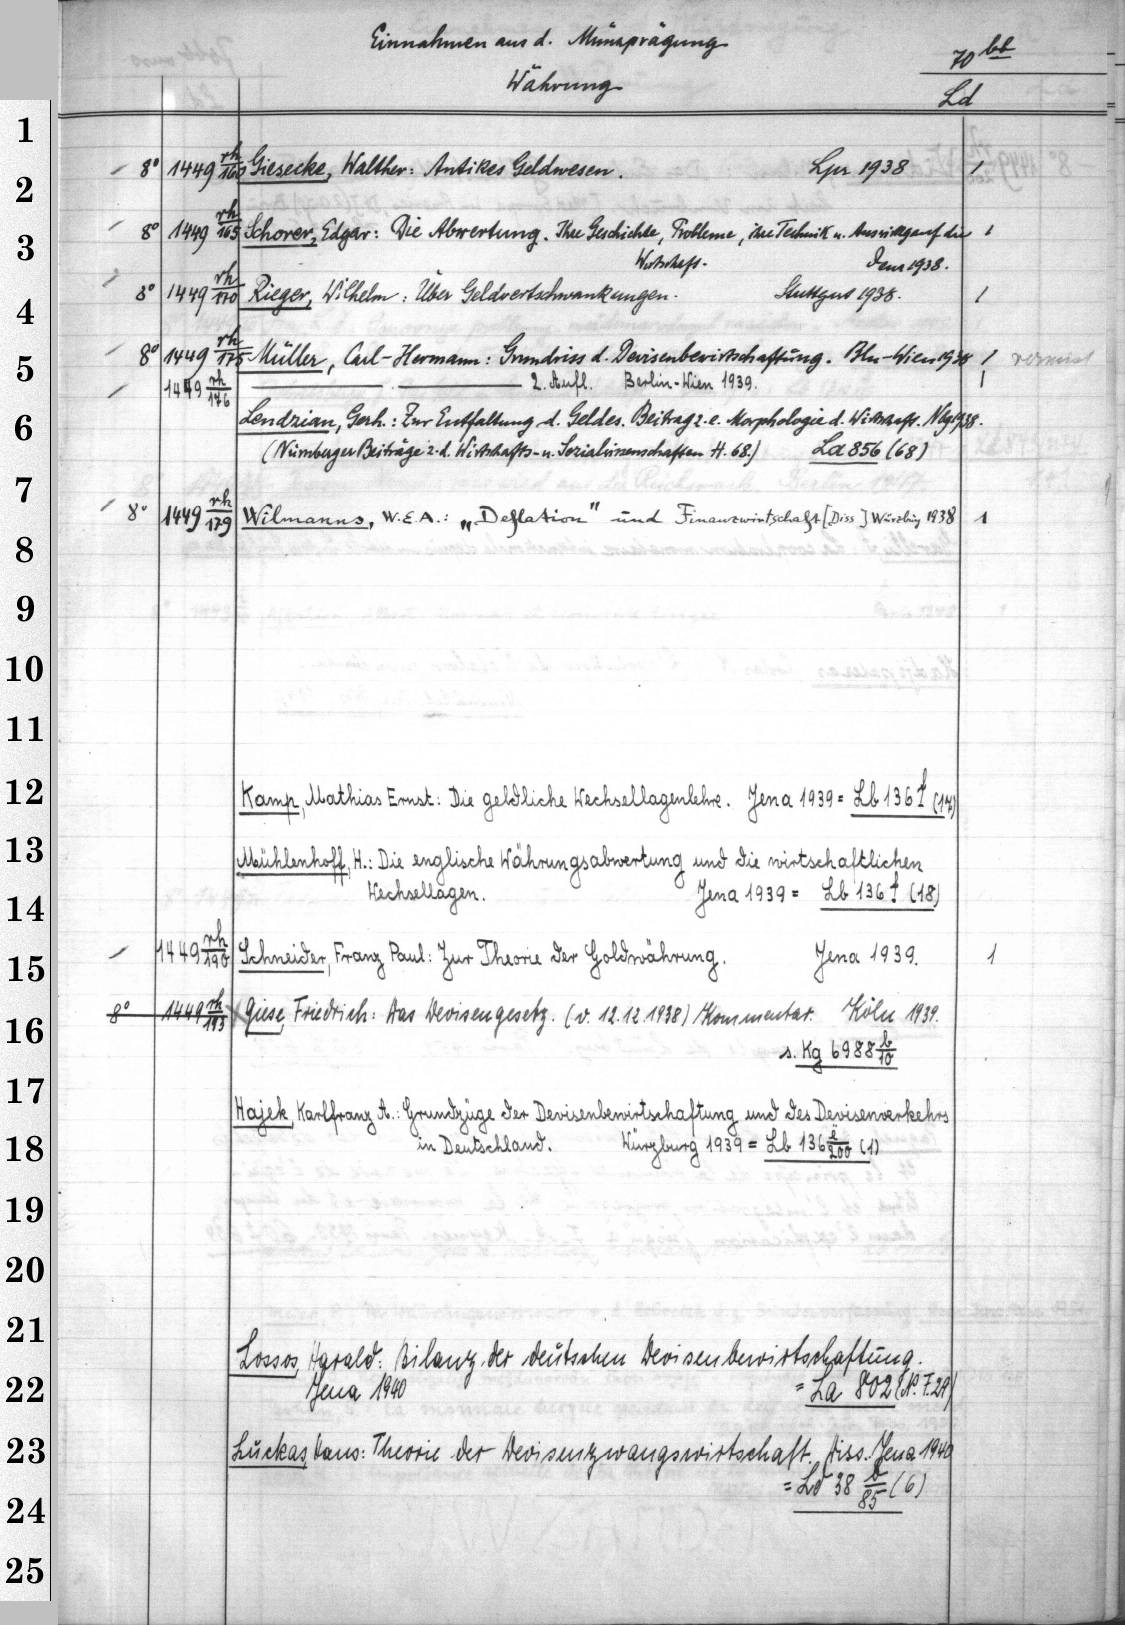 Einnahmen aus d. Münzprägung
70 bb
Währung
Ld
1
8° 1449 rh/160 Giesecke, Walther: Antikes Geldwesen. Lpz 1938 1
2
8° 1449 rh/165 Schorer, Edgar: Die Abwertung. Ihre Geschichte, Probleme, ihre Technik u. Auswirkg auf die 1
3
Wirtschaft. Jena 1938.
8° 1449 rh/170 Rieger, Wilhelm: Über Geldwertschwankungen. Stuttgart 1938. 1
4
8° 1449 rh/175 Müller, Carl-Hermann: Grundriss d. Devisenbewirtschaftung. Bln-Wien 1938 1 vermisst
5
1449 rh/176 2. Aufl. Berlin-Wien 1939. 1
Lendzian, Gerh.: Zur Entfaltung d. Geldes. Beitrag z. e. Morphologie d. Wirtschaft. Nbg 1938.
6
(Nürnberger Beiträge z. d. Wirtschafts- u. Sozialwissenschaften H. 68.) La 856 (68)
7
8° 1449 rh/179 Wilmanns, W.E.A.: „Deflation" und Finanzwirtschaft [Diss] Würzburg 1938 1
8
9
10
11
12
Kamp, Mathias Ernst: Die geldliche Wechsellagenlehre. Jena 1939 = Lb 136 f (17)
13
Mühlenhoff, H.: Die englische Währungsabwertung und die wirtschaftlichen
Wechsellagen. Jena 1939 = Lb 136 f (18)
14
1449 rh/190 Schneider, Franz Paul: Zur Theorie der Goldwährung. Jena 1939. 1
15
8° 1449 rh/193 Giese, Friedrich: Das Devisengesetz. (v. 12.12.1938) Kommentar. Köln 1939.
16
s. Kg 6988 b/10
17
Hajek, Karlfranz A.: Grundzüge der Devisenbewirtschaftung und des Devisenverkehrs
18
in Deutschland. Würzburg 1939 = Lb 136 e/200 (1)
19
20
21
Lossos, Harald: Bilanz der deutschen Devisenbewirtschaftung.
22
Jena 1940 = La 802 (N. F. 29)
23
Luckas, Hans: Theorie der Devisenzwangswirtschaft. Diss. Jena 1940
= Ld 38 b/85 (6)
24
25